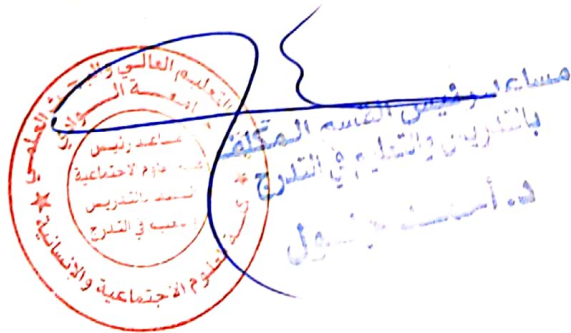 التعليم العالي والبحث العلمي
جامعة الوادي
مساعد رئيس
العلوم الاجتماعية
بالتدريس
في التدرج
العلوم الاجتماعية والإنسانية
مساعد رئيس القسم المكلف
بالتدريس والتعليم في التدرج
د. أحمد